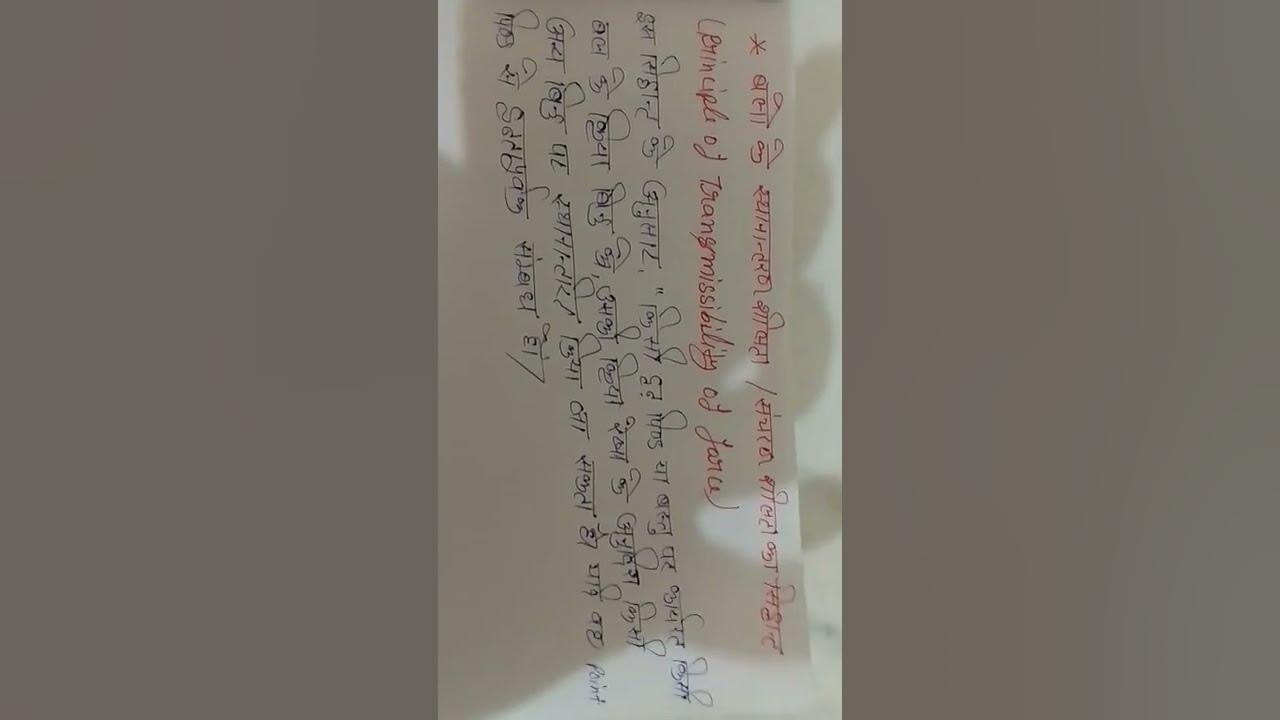 * बलो के स्थानान्तरण शीलता / संचरण शीलता का सिद्धांत
(principle of transmissibility of force)
इस सिद्धान्त के अनुसार, " किसी दृढ़ पिण्ड या वस्तु पर कार्यरत किसी
बल के क्रिया बिंदु को, उसकी क्रिया रेखा के अनुदिश किसी
अन्य बिंदु पर स्थानान्तरण किया जा सकता है यदि वह Point
पिंड से दृढ़तापूर्वक संबंध हो